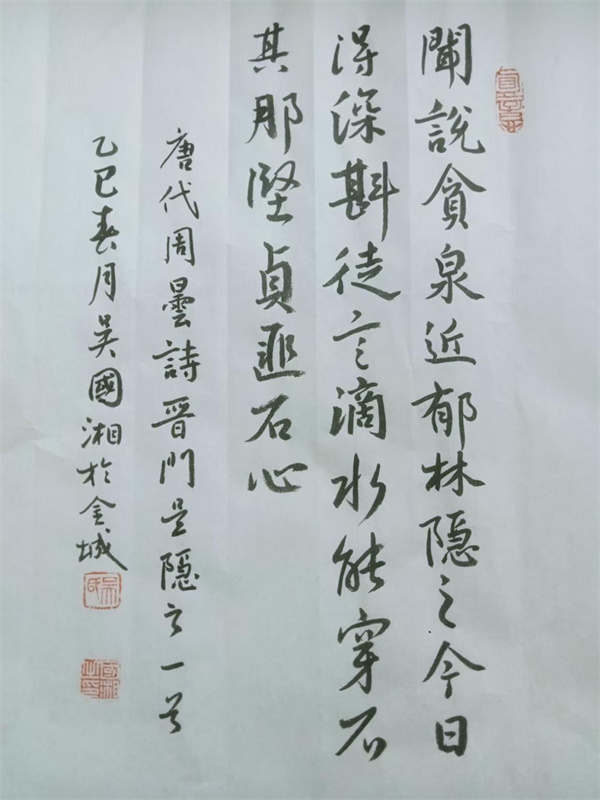 聞說貪泉近郁林隐之今日
得深斟徒言滴水能穿石
其那堅貞匪石心
唐代周曇詩晋門吴隐之一首
乙巳春月吳國湘於金城